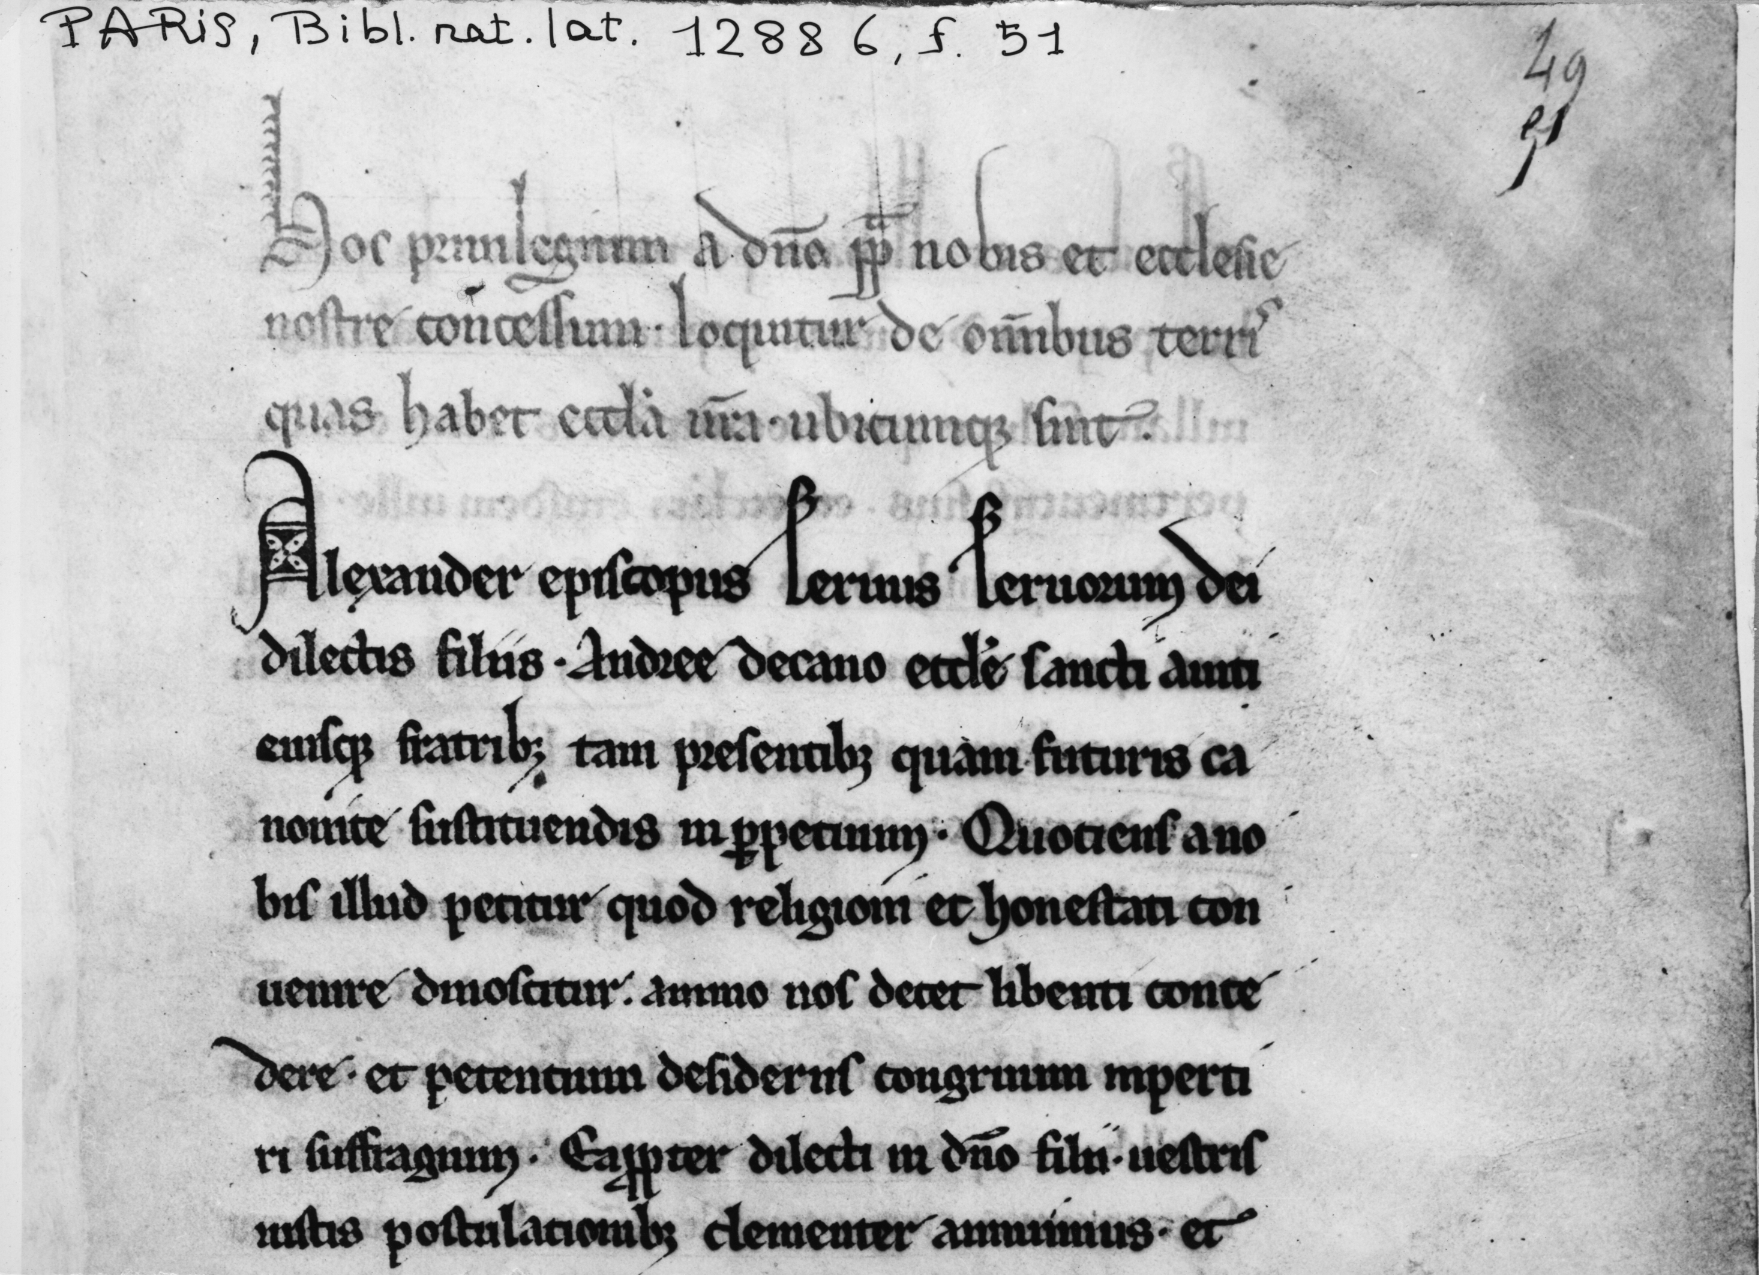 PARIS, Bibl. nat. lat. 12886, f. 51
49
51
Hoc priuilegium a dn̄o pp̄ nobis et ecclesie
nostre concessum · loquitur de om̄ibus terris
quas habet eccl'a nr̄a · ubicumq; sint .
Alexander episcopus seruus seruorum dei
dilectis filiis · Andree decano eccl'e sancti auiti
eiusq; fratrib; tam presentib; quam futuris ca
nonice sustituendis in ꝑpetuum · Quotiens a no
bis illud petitur quod religioni et honestati con
uenire dinoscitur . animo nos decet libenti conce
dere · et petentium desideriis congruum inperti
ri suffragium · Eaꝓpter dilecti in dn̄o filii · uestris
iustis postulationib; clementer annuimus · et